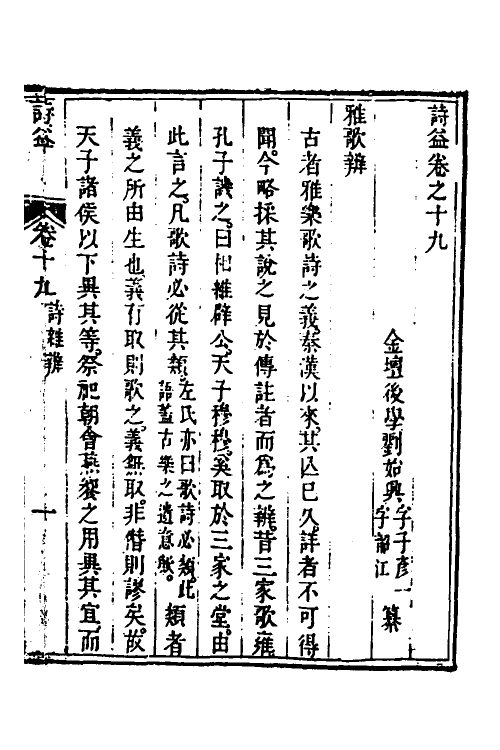 詩益卷之十九
金壇後學劉始興字子彥一字韶江纂
雅歌辨
古者雅樂歌詩之義秦漢以來其亡已久詳者不可得
聞今略採其說之見於傳註者而爲之辨昔三家歌雍
孔子譏之曰相維辟公天子穆穆奚取於三家之堂由
此言之凡歌詩必從其類左氏亦曰歌詩必類此語蓋古樂之遺意歟類者
義之所由生也義有取則歌之義無取非僭則謬矣故
天子諸侯以下異其等祭祀朝會燕饗之用異其宜而
詩益
卷十九
詩雅辨
十